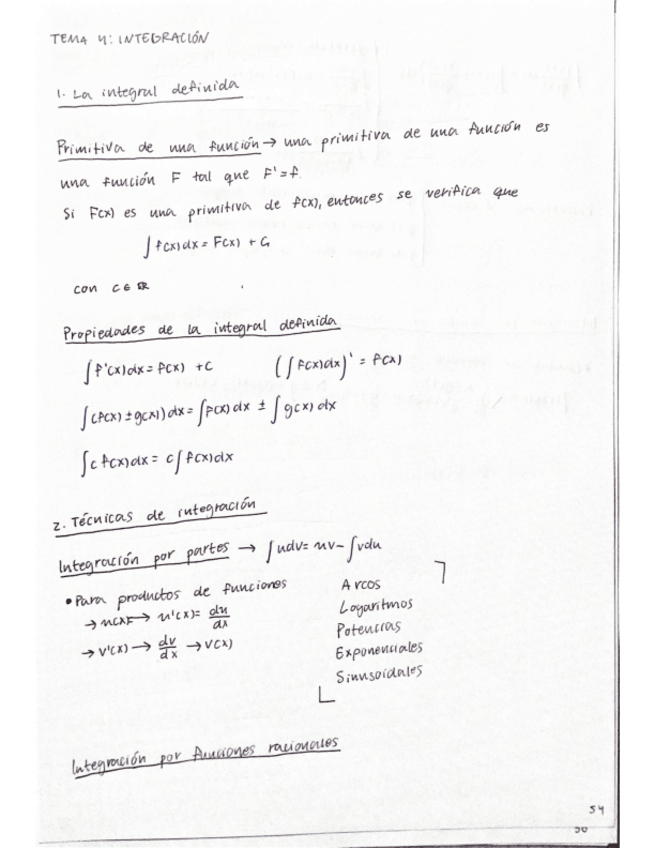 TEMA 4: INTEGRACIÓN
1. La integral definida
Primitiva de una función → una primitiva de una función es
una función F tal que F' = f.
Si F(x) es una primitiva de f(x), entonces se verifica que
∫f(x)dx = F(x) + C
con C ∈ ℝ
Propiedades de la integral definida
∫f'(x)dx = f(x) + C (∫f(x)dx)' = f(x)
∫(f(x) ± g(x))dx = ∫f(x)dx ± ∫g(x)dx
∫c f(x)dx = c∫f(x)dx
2. Técnicas de integración
Integración por partes → ∫udv = uv - ∫vdu
• Para productos de funciones
→ u(x) → u'(x) = du/dx
→ v'(x) → dv/dx → v(x)
Arcos
Logaritmos
Potencias
Exponenciales
Sinusoidales
Integración por funciones racionales
54
50